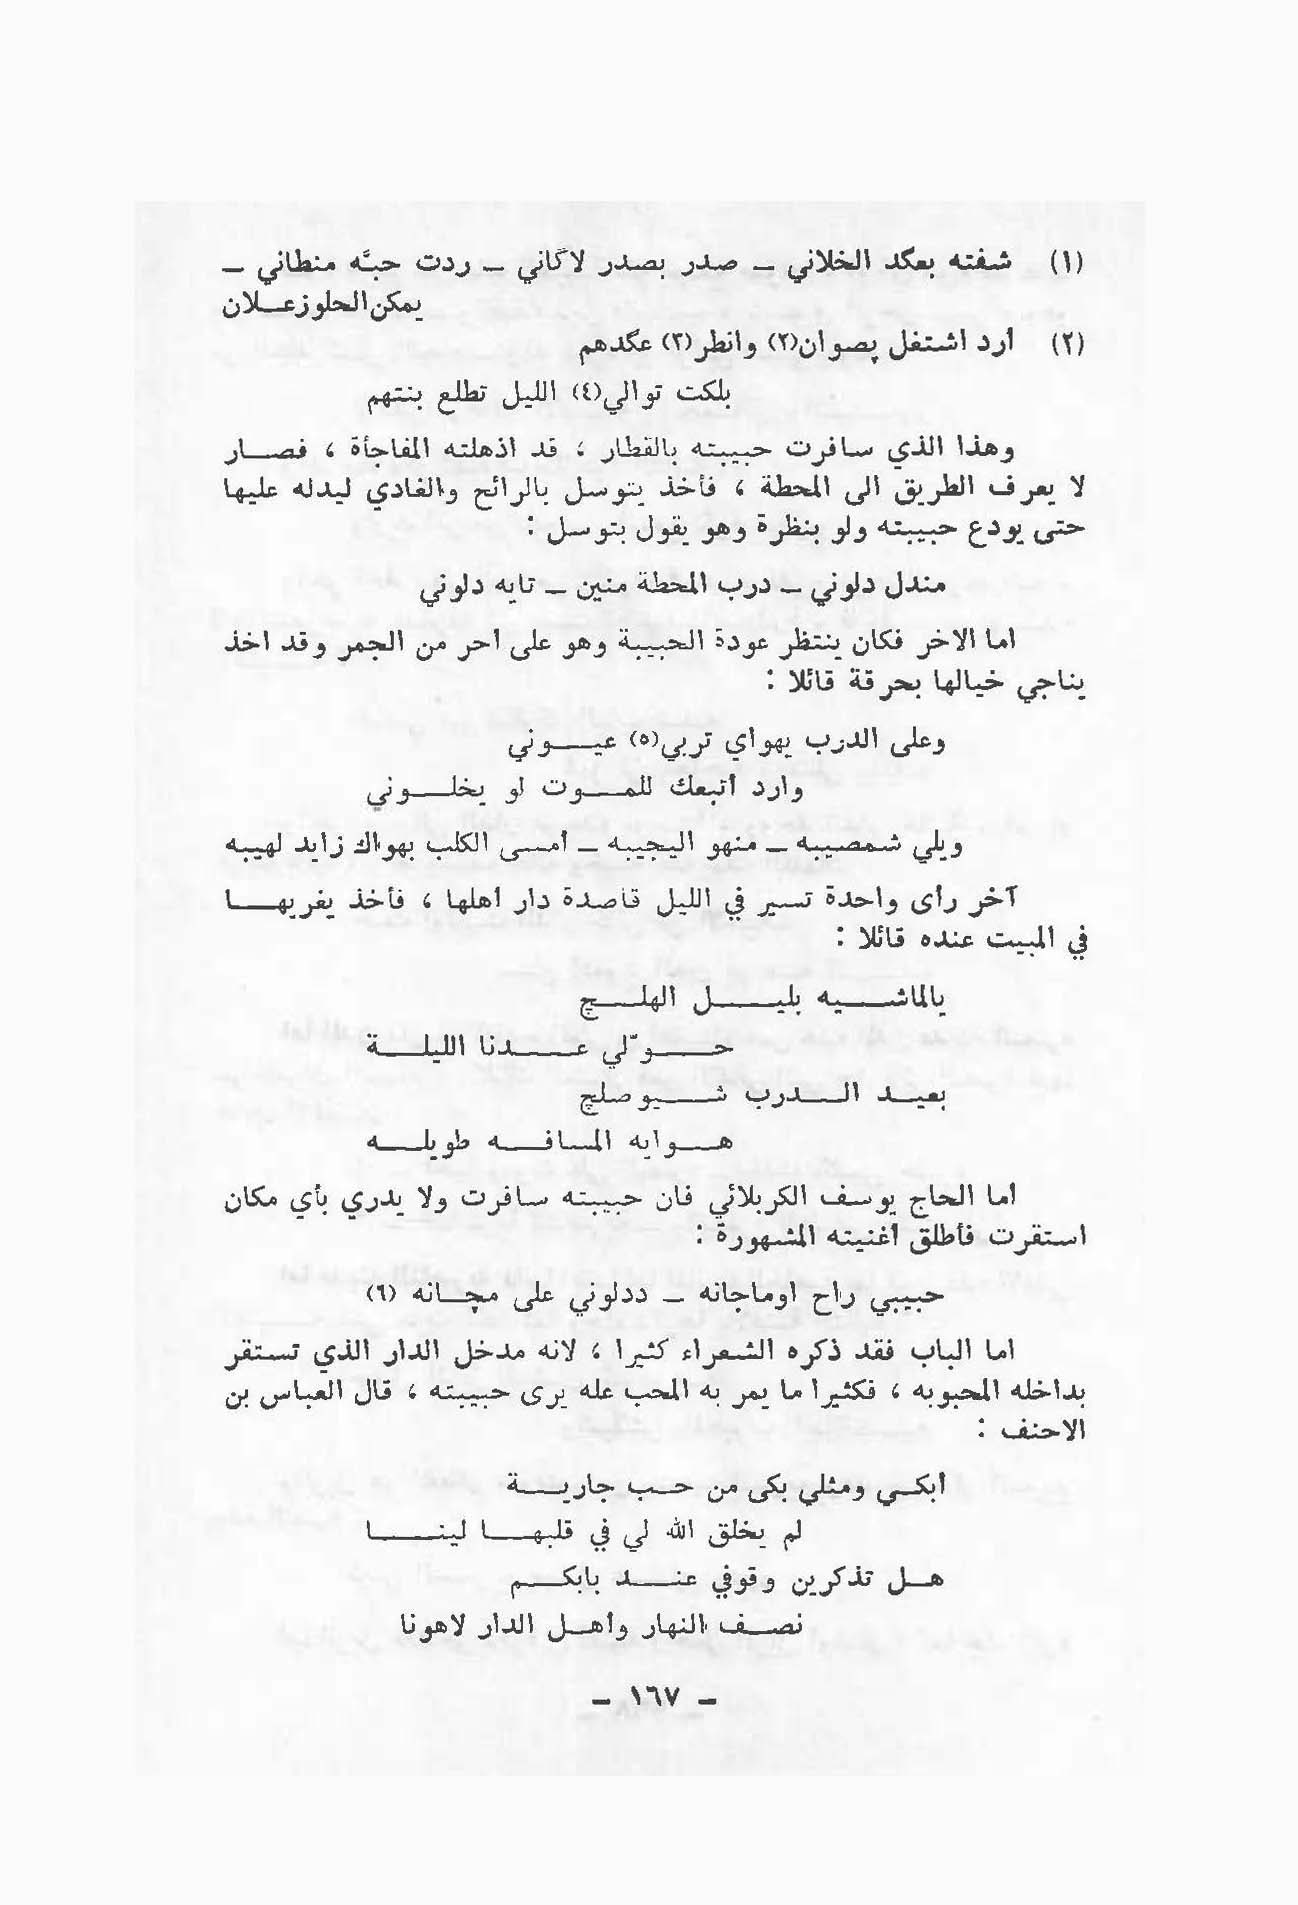 (١) شفته بعگد الخلاني ـ صدر بصدر لاگاني ـ ردت حبَّه منطاني ـ
يمكن الحلو زعـلان
(٢) أرد اشتغل پصوان(٢) وانطر(٣) عگدهم
بلكت توالي(٤) الليل تطلع بنتهم
وهذا الذي سافرت حبيبته بالقطار ، قد اذهلته المفاجأة ، فصـار
لا يعرف الطريق الى المحطة ، فأخذ يتوسل بالرائح والغادي ليدله عليها
حتى يودع حبيبته ولو بنظرة وهو يقول بتوسل :
مندل دلوني ـ درب المحطة منين ـ تايه دلوني
اما الاخر فكان ينتظر عودة الحبيبة وهو على احر من الجمر وقد اخذ
يناجي خيالها بحرقة قائلا :
وعلى الدرب يهواي تربي(٥) عيـــوني
وارد أتبعك للمـــوت لو يخلـــوني
ويلي شمصيبه ـ منهو اليجيبه ـ أمسى الكلب بهواك زايد لهيبه
آخر رأى واحدة تسير في الليل قاصدة دار أهلها ، فأخذ يغريهـــا
في المبيت عنده قائلا :
يالماشـــيه بليـــل الهلـــچ
حـــوّلي عـــدنا الليلـــة
بعيـد الـــدرب شـــيوصلچ
هـــوايه المسافـــه طويلـــه
أما الحاج يوسف الكربلائي فان حبيبته سافرت ولا يدري بأي مكان
استقرت فأطلق أغنيته المشهورة :
حبيبي راح اوماجانه ـ ددلوني على مچـانه (٦)
اما الباب فقد ذكره الشعراء كثيرا ، لانه مدخل الدار الذي تستقر
بداخله المحبوبه ، فكثيرا ما يمر به المحب عله يرى حبيبته ، قال العباس بن
الاحنف :
أبكـي ومثلي بكى من حـب جاريـــة
لم يخلق الله لي في قلبهـــا لينـــا
هـل تذكرين وقوفي عنـــد بابكـــم
نصـف النهار وأهـل الدار لاهونا
ـ ١٦٧ ـ